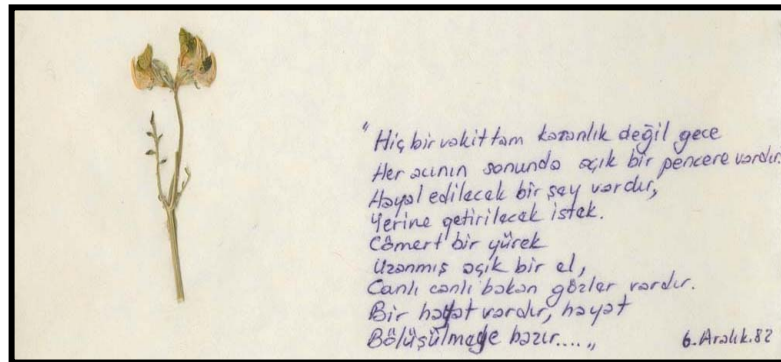 "Hiç bir vakit tam karanlık değil gece
Her acının sonunda açık bir pencere vardır.
Hayal edilecek bir şey vardır,
Yerine getirilecek istek.
Cömert bir yürek
Uzanmış açık bir el,
Canlı canlı bakan gözler vardır.
Bir hayat vardır, hayat
Bölüşülmeye hazır....„
6.Aralık.82